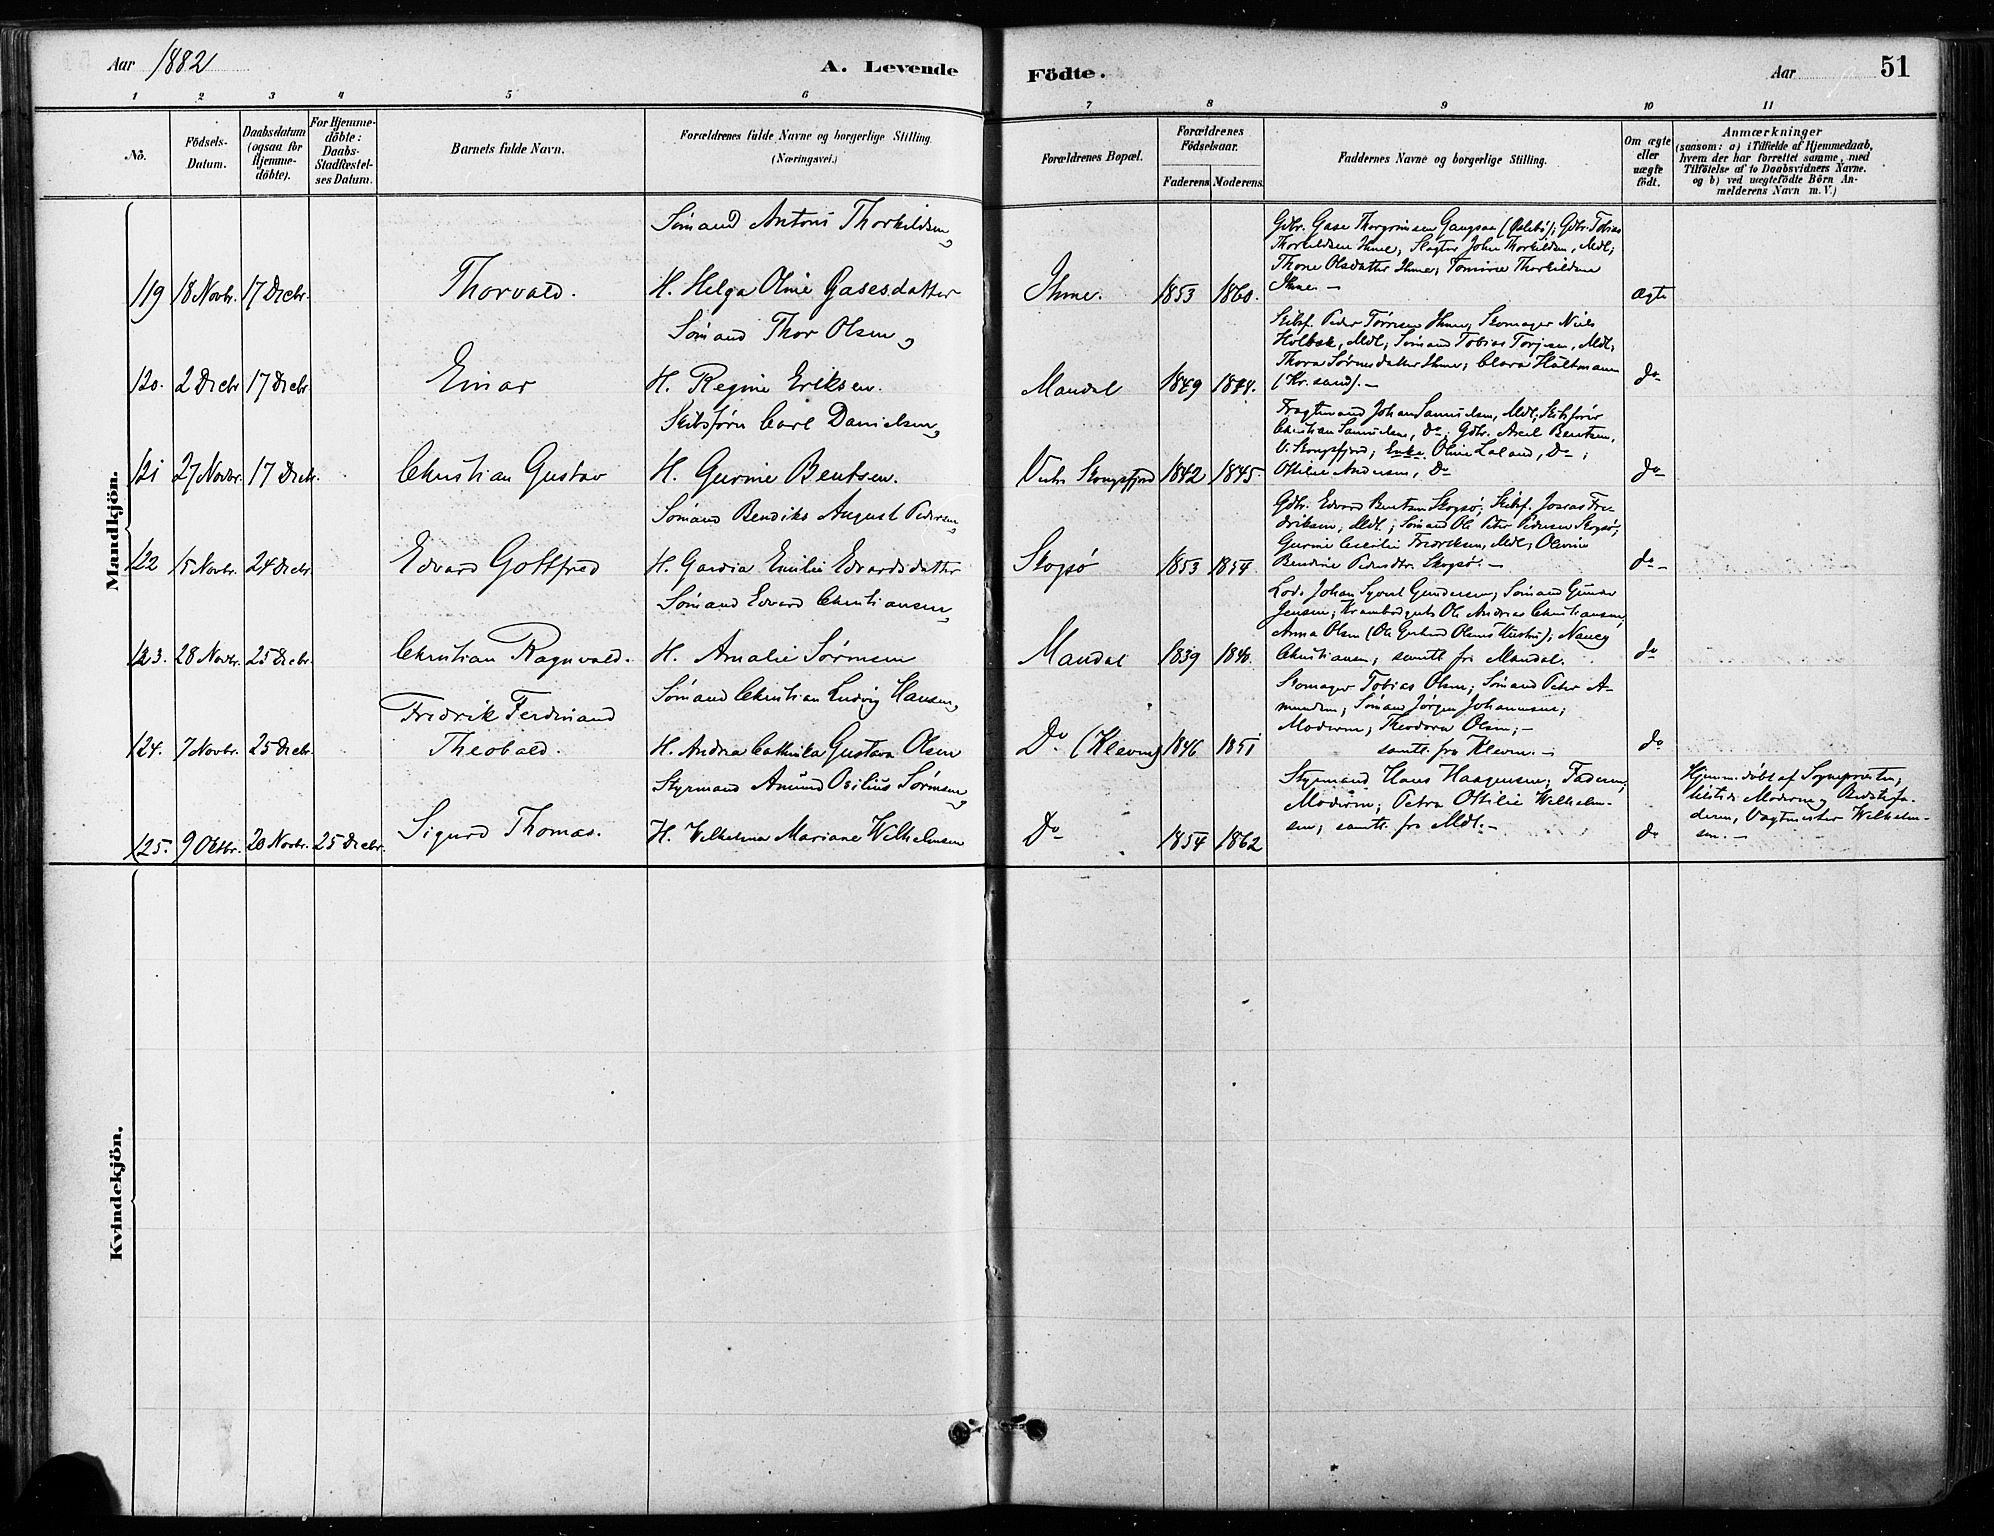 Aar 1882
A. Levende
Födte.
Aar
51
1 2 3 4 5 6 7 8 9 10 11
No.
Födsels-Datum.
Daabsdatum (ogsaa for Hjemme-döbte).
For Hjemme-döbte: Daabs-Stadfæstel-ses Datum.
Barnets fulde Navn.
Forældrenes fulde Navne og borgerlige Stilling (Næringsvei.)
Forældrenes Bopæl.
Forældrenes Födselsaar.
Faderens. Moderens.
Faddernes Navne og borgerlige Stilling.
Om ægte eller uægte födt.
Anmærkninger
(saasom: a) i Tilfælde af Hjemmedaab,
hvem der har forrettet samme, med
Tilföielse af to Daabsvidners Navne,
og b) ved uægtefödte Börn An-
melderens Navn m. V.)
Mandkjön.
119 18 Novbr. 17 Decbr. Thorvald.
Sømand Antoni Thorkildsen,
H. Helga Oline Gasesdatter
Ihme. 1853 1860.
Gdbr. Gase Thorgrimsen Gangsaa (Øslebø); Gdbr. Tobias
Thorkildsen Ihme; Slagter John Thorkildsen, Mdl;
Thone Olsdatter Ihme; Tomine Thorkildsen
Ihme. —
ægte
120. 2 Decbr 17 Decbr. Einar
Sømand Thor Olsen,
H. Regine Eriksen.
Mandal 1849 1844.
Skibsf. Peder Tørresen Ihme; Skomager Niels
Holbæk, Mdl; Sømand Tobias Torjesen, Mdl;
Thora Sørensdatter Ihme; Clara Hultmann
(Kr.sand). —
do
121 27 Novbr. 17 Decbr. Christian Gustav
Skibsfører Carl Danielsen,
H. Gurine Bentsen.
Vestre Skongsfjord 1842 1845.
Fragtemand Johan Samuelsen, Mdl; Skibsfører
Christian Samuelsen, Do; Gdbr. Axel Bentsen,
V. Skongsfjord; Enke Oline Laland, Do;
Ottilie Andersen, Do
do
122 15 Novbr. 24 Decbr. Edvard Gottfred
Sømand Bendiks August Pedersen,
H. Gardia Emilie Edvardsdatter
Skogsø 1853 1854
Gdbr. Edvard Bentsen Skogsø; Skibsf. Josias Fre-
driksen, Mdl.; Sømand Ole Peter Pedersen Skogsø;
Gurine Cecilie Fredriksen, Mdl; Olevine
Bendine Pedersdtr. Skogsø. —
do
123. 28 Novbr. 25 Decbr. Christian Ragnvald.
Sømand Edvard Christiansen,
H. Amalie Sørensen
Mandal 1839 1840.
Lods Johan Syvert Gundersen; Sømand Gunder
Jensen; Krambodgut Ole Andreas Christiansen,
Anna Olsen (Ole Gerhard Olsens Hustru); Nancy
Christiansen, samtl. fra Mandal.
do
124. 7 Novbr. 25 Decbr. Fredrik Ferdinand
Theobald.
Sømand Christian Ludvig Hansen,
H. Andrea Cathinka Gustava Olsen
Do (Kleven) 1846 1851
Skomager Tobias Olsen; Sømand Peter A-
mundsen; Sømand Jørgen Johannesen;
Moderen; Theodora Olsen; —
samtl. fra Kleven. —
do
125. 9 Oktbr. 20 Novbr. 25 Decbr. Sigurd Thomas.
Styrmand Amund Osilius Sørensen,
H. Wilhelmina Mariane Wilhelmsen
Do 1854 1862
Styrmand Hans Haagensen; Faderen;
Moderen; Petra Ottilie Wilhelm-
sen; samtl. fra Mdl. —
do
Hjemmedøbt af Sognepræsten;
tilstede Moderen, Bedstefa-
deren, Vagtmester Wilhelm-
sen. —
Kvindekjön.